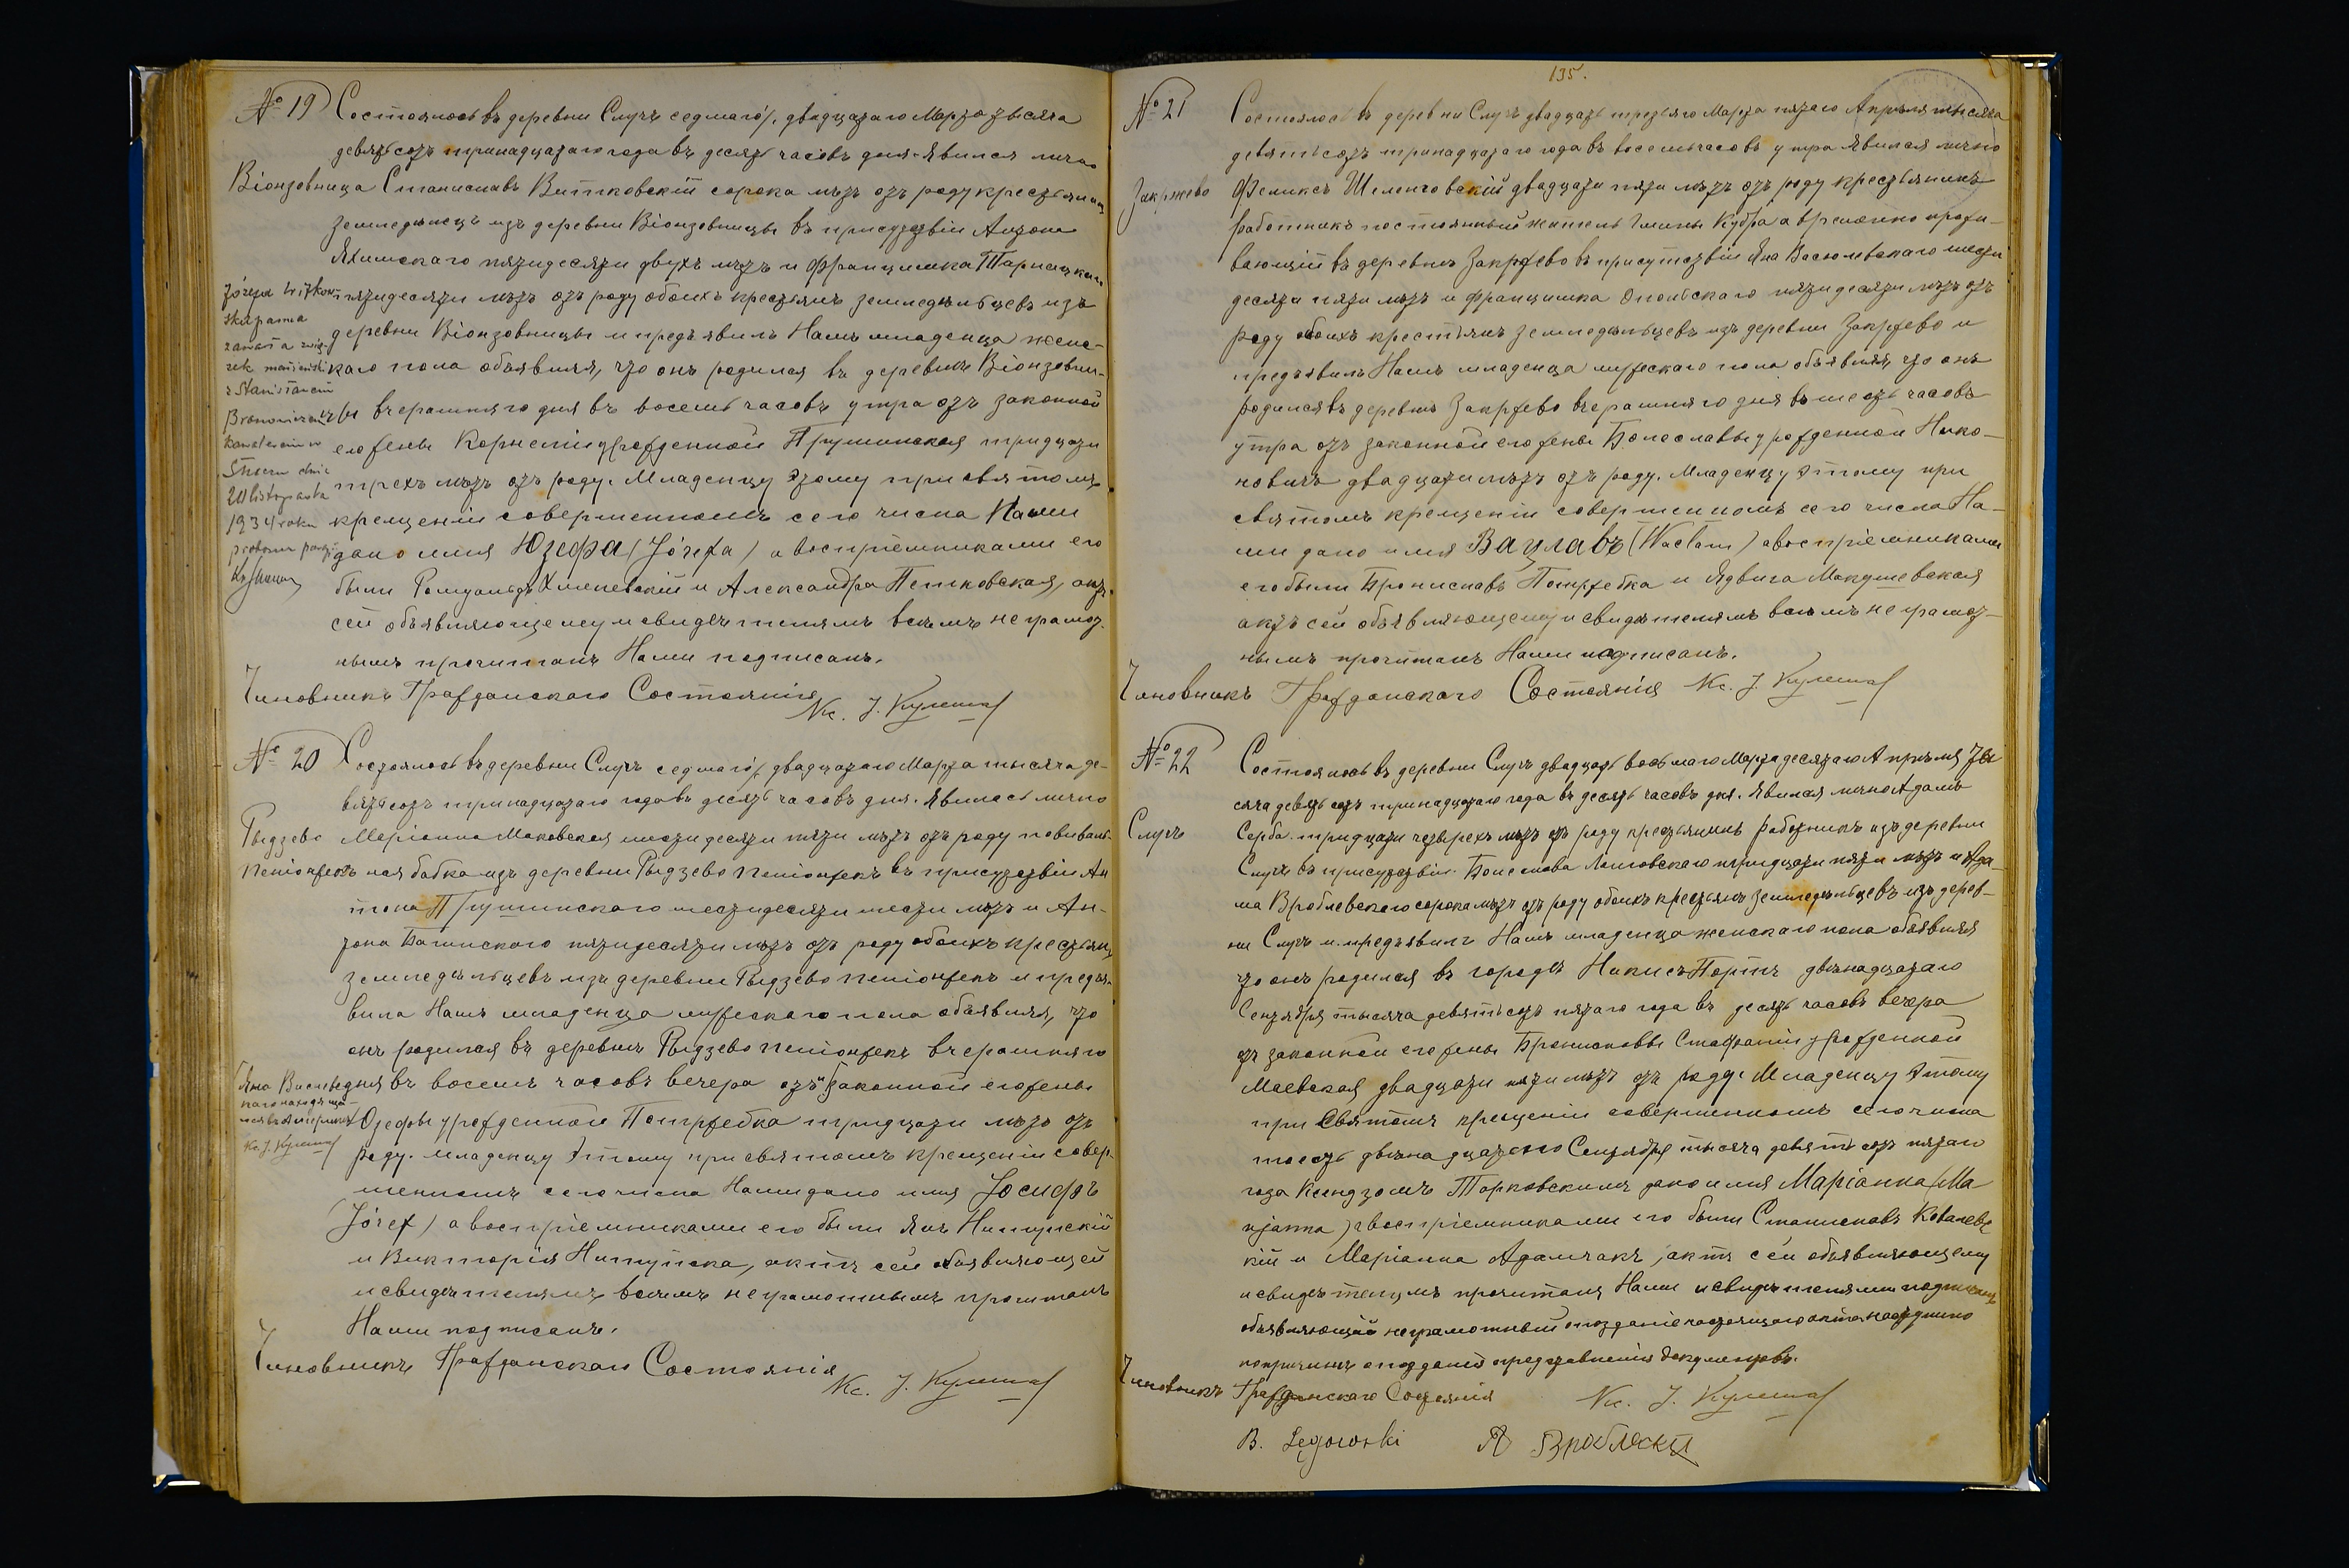 № 19
Состоялось въ деревни Случъ седмаго/двадцатаго Марта тысяча
девятьсотъ тринадцатаго года въ десять часовъ дня. Явился лично
Віонзовница Станиславъ Витковскій сорока лѣтъ отъ роду крестьянинъ
земледѣлецъ изъ деревни Віонзовницы въ присутствіи Антона
Яхимскаго пятидесяти двухъ лѣтъ и Францишка
пятидесяти лѣтъ отъ роду обоихъ крестьянъ земледѣльцевъ изъ
деревни Віонзовницы и предъявилъ Намъ младенца женс-
каго пола объявляя, что онъ родился въ деревнѣ Віонзовни-
цы вчерашняго дня въ восемь часовъ утра отъ законной
его жены Корнеліи урожденной Прушинская тридцати
трехъ лѣтъ отъ роду. Младенцу этому при святомъ
крещеніи совершенномъ сего числа Нами
дано имя Юзефа (Józefa) а воспріемниками его
были Ромуальдъ Хмелевскій и Александра Петковская, актъ
сей объявляющему и свидѣтелямъ всѣмъ неграмот-
нымъ прочитанъ Нами подписанъ.
Чиновникъ Гражданскаго Состоянія
Кс. J. Кулеша
Józefa Witkow-
ska panna
zawarła zwią-
zek małżeński
z Stanisławem
kawalerem w
dnia
20 listopada
1934 roku
proboszcz
№ 20
Состоялось въ деревни Случъ седмаго/двадцатаго Марта тысяча де-
вятьсотъ тринадцатаго года въ десять часовъ дня. Явилась лично
Рыдзево Маріанна Маковская шестидесяти пяти лѣтъ отъ роду повиваль-
Пеніонжекъ ная бабка изъ деревни Рыдзево Пеніонжекъ въ присутствіи Ан
тона Прушинскаго шестидесяти шести лѣтъ и Ан-
тона Багинскаго пятидесяти лѣтъ отъ роду обоихъ крестьянъ
земледѣльцевъ изъ деревни Рыдзево Пеніонжекъ и предъя-
вила Намъ младенца мужескаго пола объявляя, что
онъ родился въ деревнѣ Рыдзево Пеніонжекъ вчерашняго
дня въ восемь часовъ вечера отъ законной его жены
Юзефы урожденной Петржебка тридцати лѣтъ отъ
роду. Младенцу этому при святомъ крещеніи совер-
шенномъ сего числа Нами дано имя Іосифъ
(Józef) а воспріемниками его были Янъ
и Викторія, актъ сей объявляющей
и свидѣтелямъ всѣмъ неграмотнымъ прочитанъ
Нами подписанъ.
Чиновникъ Гражданскаго Состоянія
Кс. J. Кулеша
Яна
Кс. J. Кулеша
135.
№ 21
Состоялось въ деревни Случъ двадцать третьяго Марта пятаго Апрѣля тысяча
девятьсотъ тринадцатаго года въ восемь часовъ утра явился лично
Закржево Феликсъ Шеленговскій двадцати пяти лѣтъ отъ роду крестьянинъ
работникъ постоянный житель Гмины Кубра а временно прожи-
вающій въ деревнѣ Закржево въ присутствіи Яна шести
десяти пяти лѣтъ и Францишка Опольскаго пятидесяти лѣтъ отъ
роду обоихъ крестьянъ земледѣльцевъ изъ деревни Закржево и
предъявилъ Намъ младенца мужескаго пола объявляя, что онъ
родился въ деревнѣ Закржево вчерашняго дня въ шесть часовъ
утра отъ законной его жены Болеславы урожденной Нико-
новичъ двадцати лѣтъ отъ роду. Младенцу этому при
святомъ крещеніи совершенномъ сего числа На-
ми дано имя Вацлавъ (Wacław) а воспріемниками
его были Брониславъ Петржебка и Ядвига Макушевская
актъ сей объявляющему и свидѣтелямъ всѣмъ неграмот-
нымъ прочитанъ Нами подписанъ.
Чиновникъ Гражданскаго Состоянія Кс. J. Кулеша
№ 22
Состоялось въ деревни Случъ двадцать восьмаго Марта десятаго Апрѣля ты
сяча девятьсотъ тринадцатаго года въ десять часовъ дня. Явился лично Адамъ
Случъ Серба тридцати четырехъ лѣтъ отъ роду крестьянинъ работникъ изъ деревни
Случъ въ присутствіи Болеслава тридцати пяти лѣтъ и Ада-
ма Вроблевскаго сорока лѣтъ отъ роду обоихъ крестьянъ земледѣльцевъ изъ дерев-
ни Случъ и предъявилъ Намъ младенца женскаго пола объявляя
что онъ родился въ городѣ двѣнадцатаго
Сентября тысяча девятьсотъ пятаго года въ десять часовъ вечера
отъ законной его жены Брониславы Стафаніи урожденной
Маевская двадцати пяти лѣтъ отъ роду. Младенцу этому
при Святомъ крещеніи совершенномъ сего числа
тоесть двѣнадцатаго Сентября тысяча девятьсотъ пятаго
года Ксендзомъ Торковскимъ дано имя Маріанна (Ma
rjanna) а воспріемниками его были Станиславъ Ковалевс
кій и Маріанна Адамчакъ, актъ сей объявляющему
и свидѣтелямъ прочитанъ Нами и свидѣтелями подписанъ
объявляющій неграмотный опозданіе настоящаго акта
по причинѣ опозданія представленія документовъ.
Чиновникъ Гражданскаго Состоянія Кс. J. Кулеша
B. Łęgowski А Вроблески